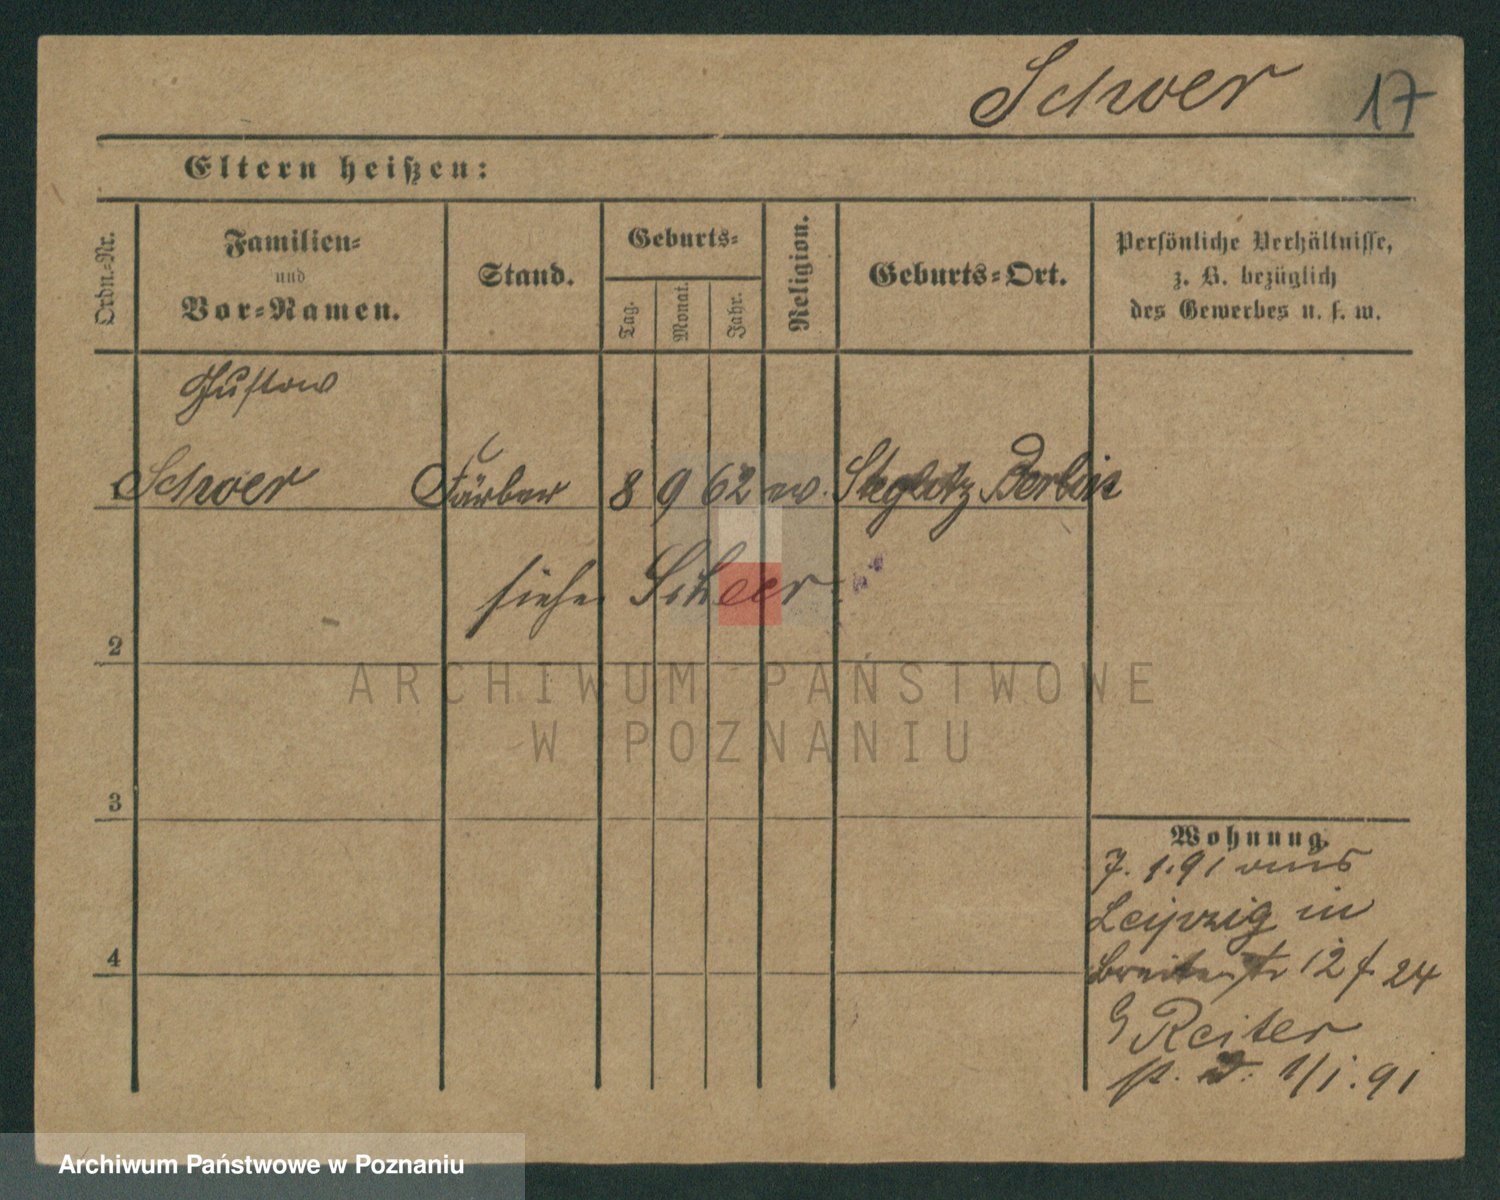 Schoer 17
Eltern heißen:
Ordn.-Nr.
Familien-
und
Vor-Namen.
Stand.
Geburts-
Tag.
Monat.
Jahr.
Religion.
Geburts-Ort.
Persönliche Verhältnisse,
z. B. bezüglich
des Gewerbes u. s. w.
Gustav
1 Schoer Färber 8 9 62 ev. Steglitz Berlin
siehe Scheer
2
3
4
Wohnung.
7. 1. 91 aus
Leipzig in
Breitestr 12 f. 24
Reiter
1/1. 91
ARCHIWUM PAŃSTWOWE
W POZNANIU
Archiwum Państwowe w Poznaniu